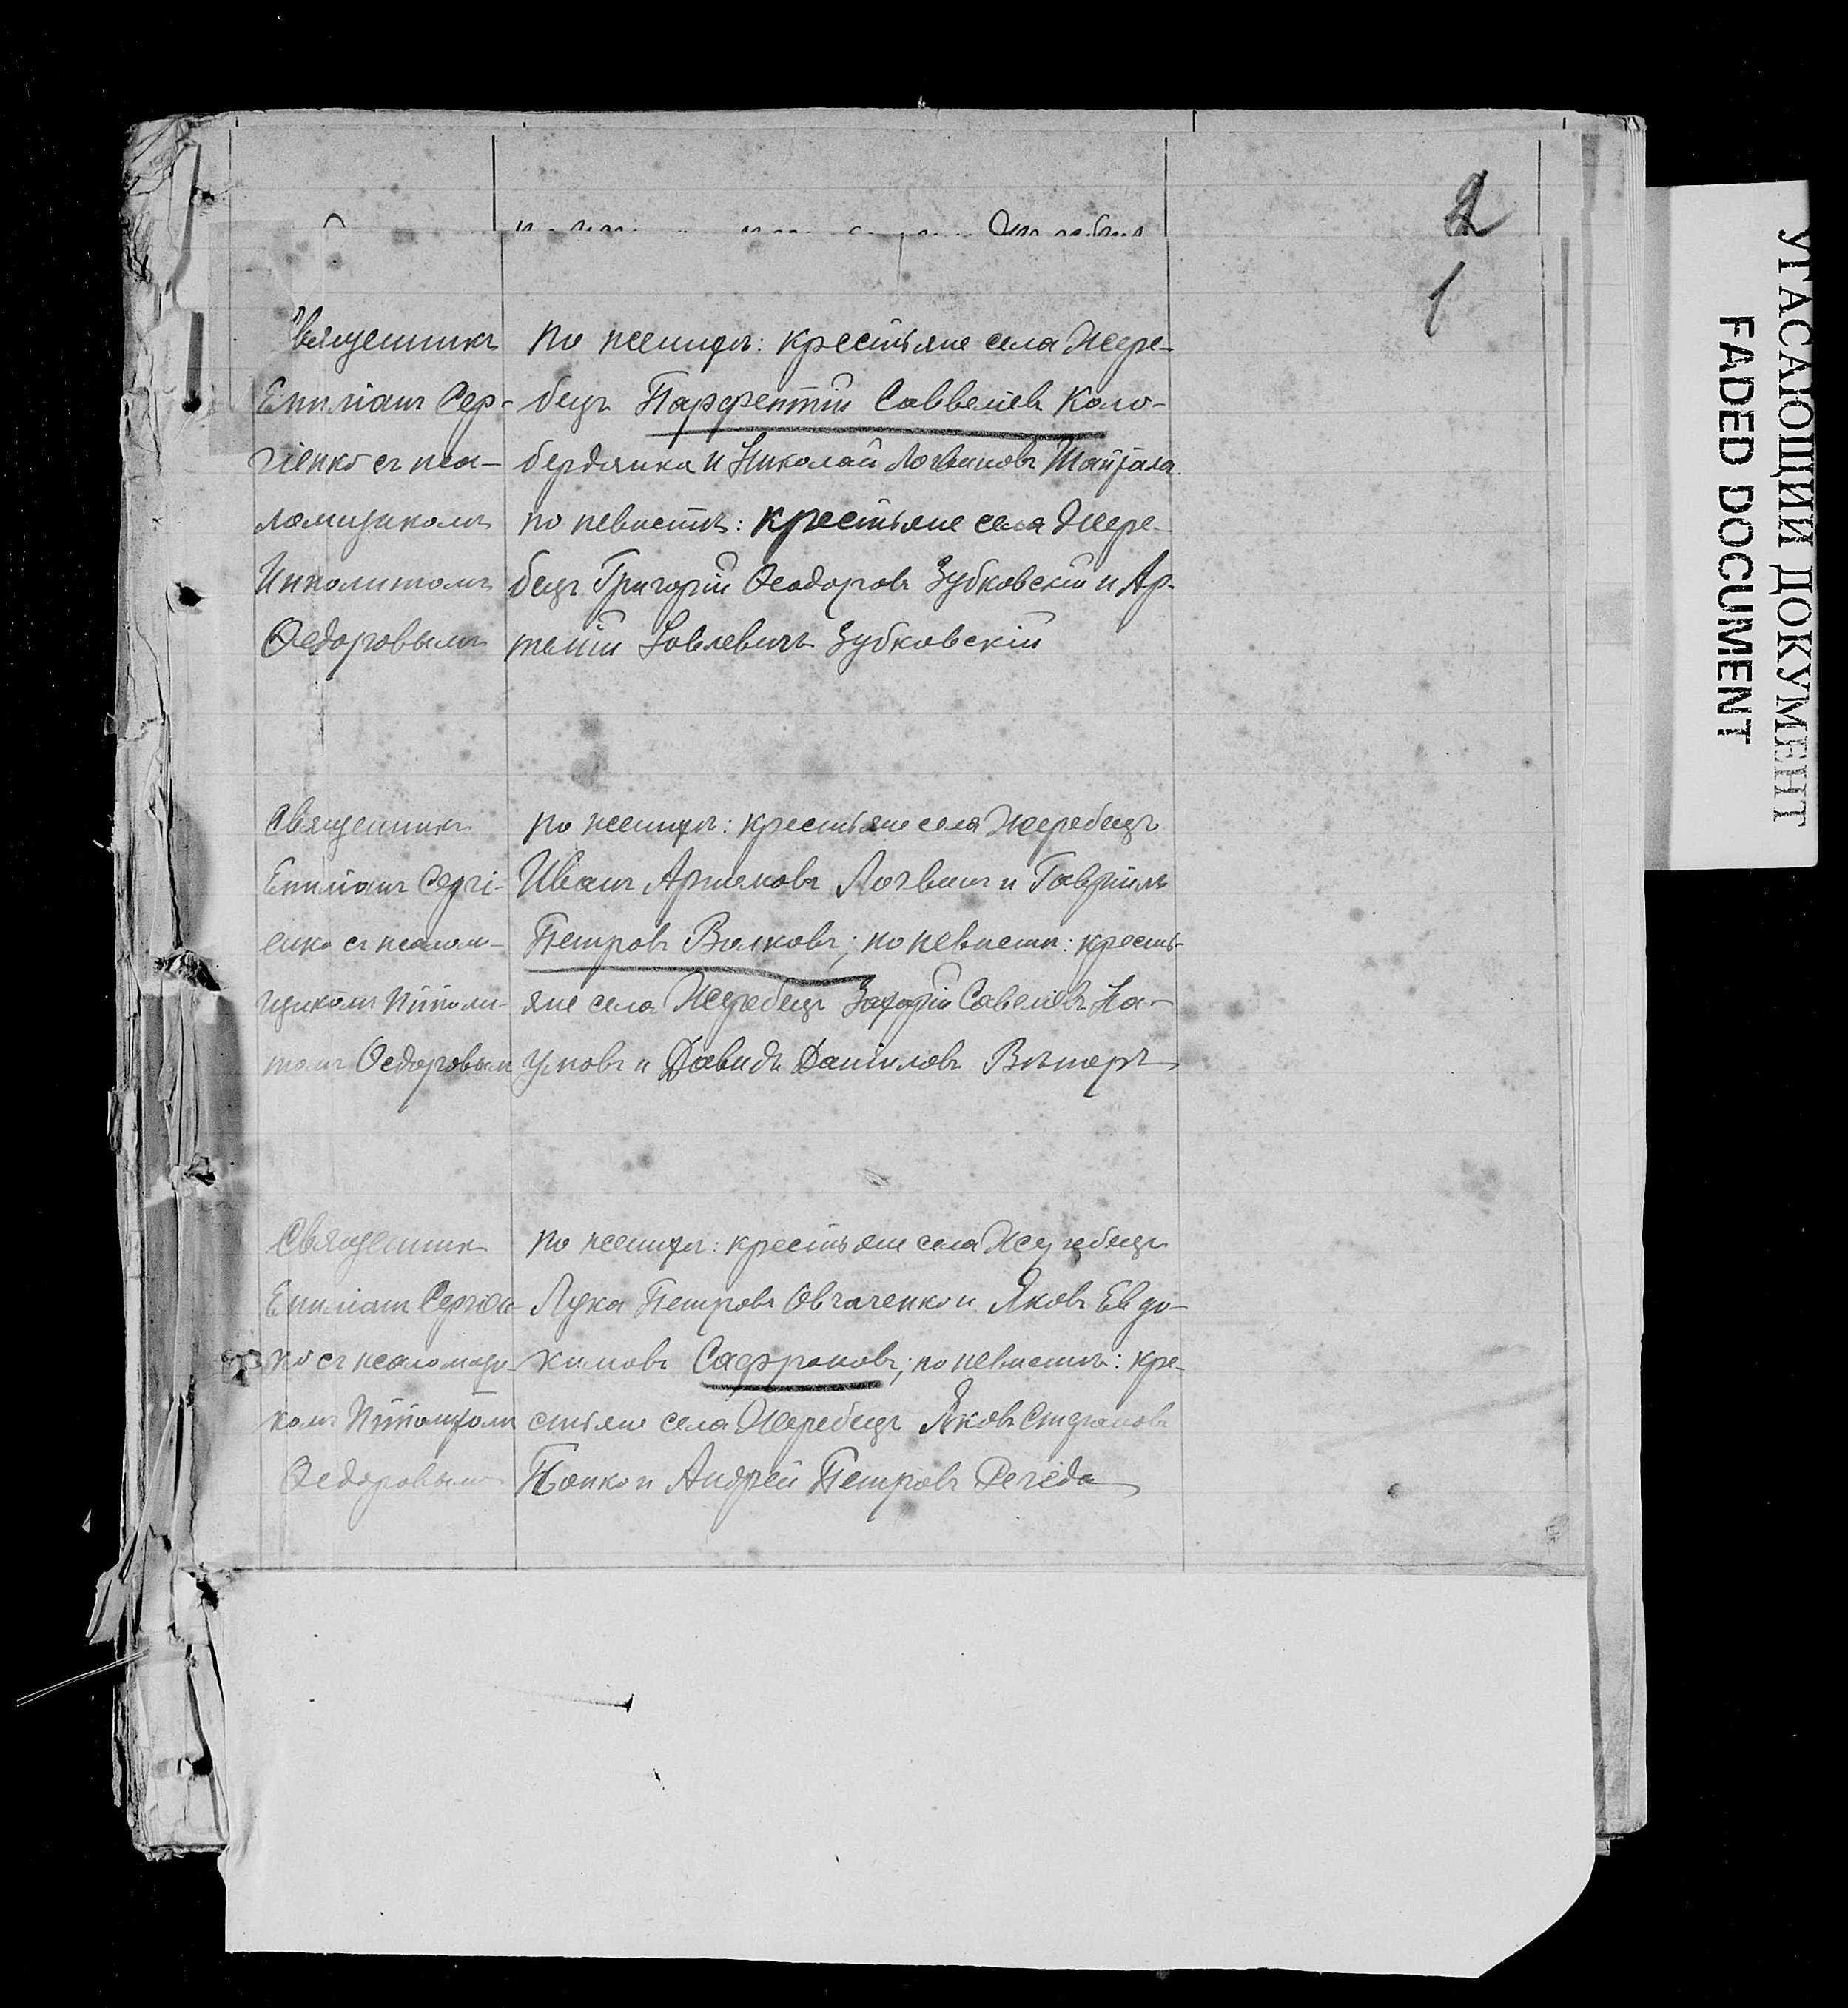 2
1
Священникъ
Емиліанъ Сер-
гіенко съ пса-
ломщикомъ
Ипполитомъ
Ѳедоровымъ
По женихѣ: крестьяне села Жере-
бецъ Парфентій Саввеліевъ Коло-
бердянка и Николай Логвиновъ
по невѣстѣ: крестьяне села Жере-
бецъ Григорій Ѳеодоровъ Зубковскій и Ар-
темій Іовлевичъ Зубковскій
Священникъ
Емиліанъ Сергі-
енко съ псалом-
щикомъ Иполи-
томъ Ѳедоровым
по женихѣ: крестьяне села Жеребецъ
Иванъ Логвинъ и Гавріилъ
Петровъ Волковъ; по невѣстѣ: кресть-
яне села Жеребецъ Захарій Савеліевъ На-
умовъ и Давидъ Даніиловъ Вѣтеръ
Священник
Емиліанъ Сергіен-
ко съ псаломщи-
комъ Иполитом
Ѳедоровымъ
по женихѣ: крестьяне села Жеребецъ
Лука Петровъ Овчаренко и Яковъ Евдо-
кимовъ Сафроновъ; по невѣстѣ: кре-
стьяне села Жеребецъ Яковъ Стефановъ
Попко и Андрей Петровъ
УГАСАЮЩИЙ ДОКУМЕНТ
FADED DOCUMENT